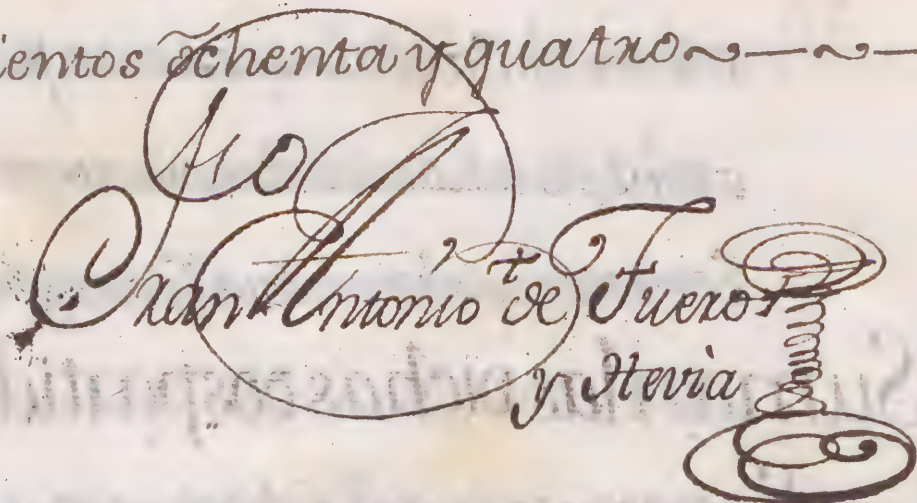 ientos õchenta y quatro
Fran Antonio de Fuero
y Hevia